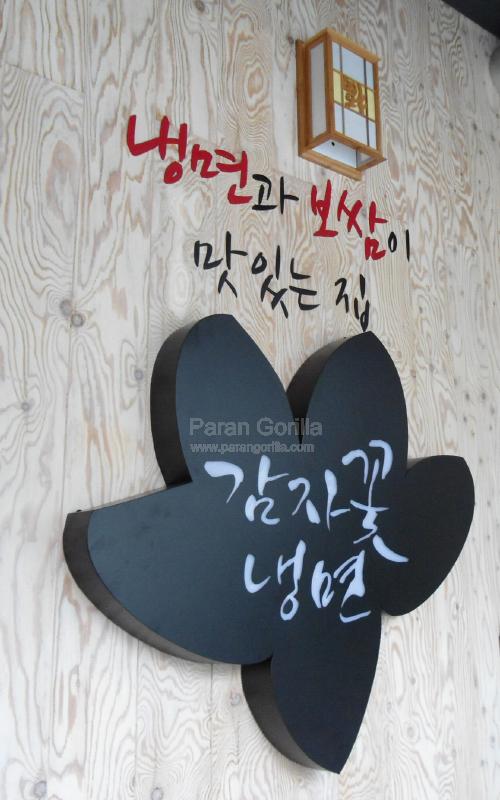 냉면과 보쌈이
맛있는 집
Paran Gorilla
www.parangorilla.com
감자꽃
냉면